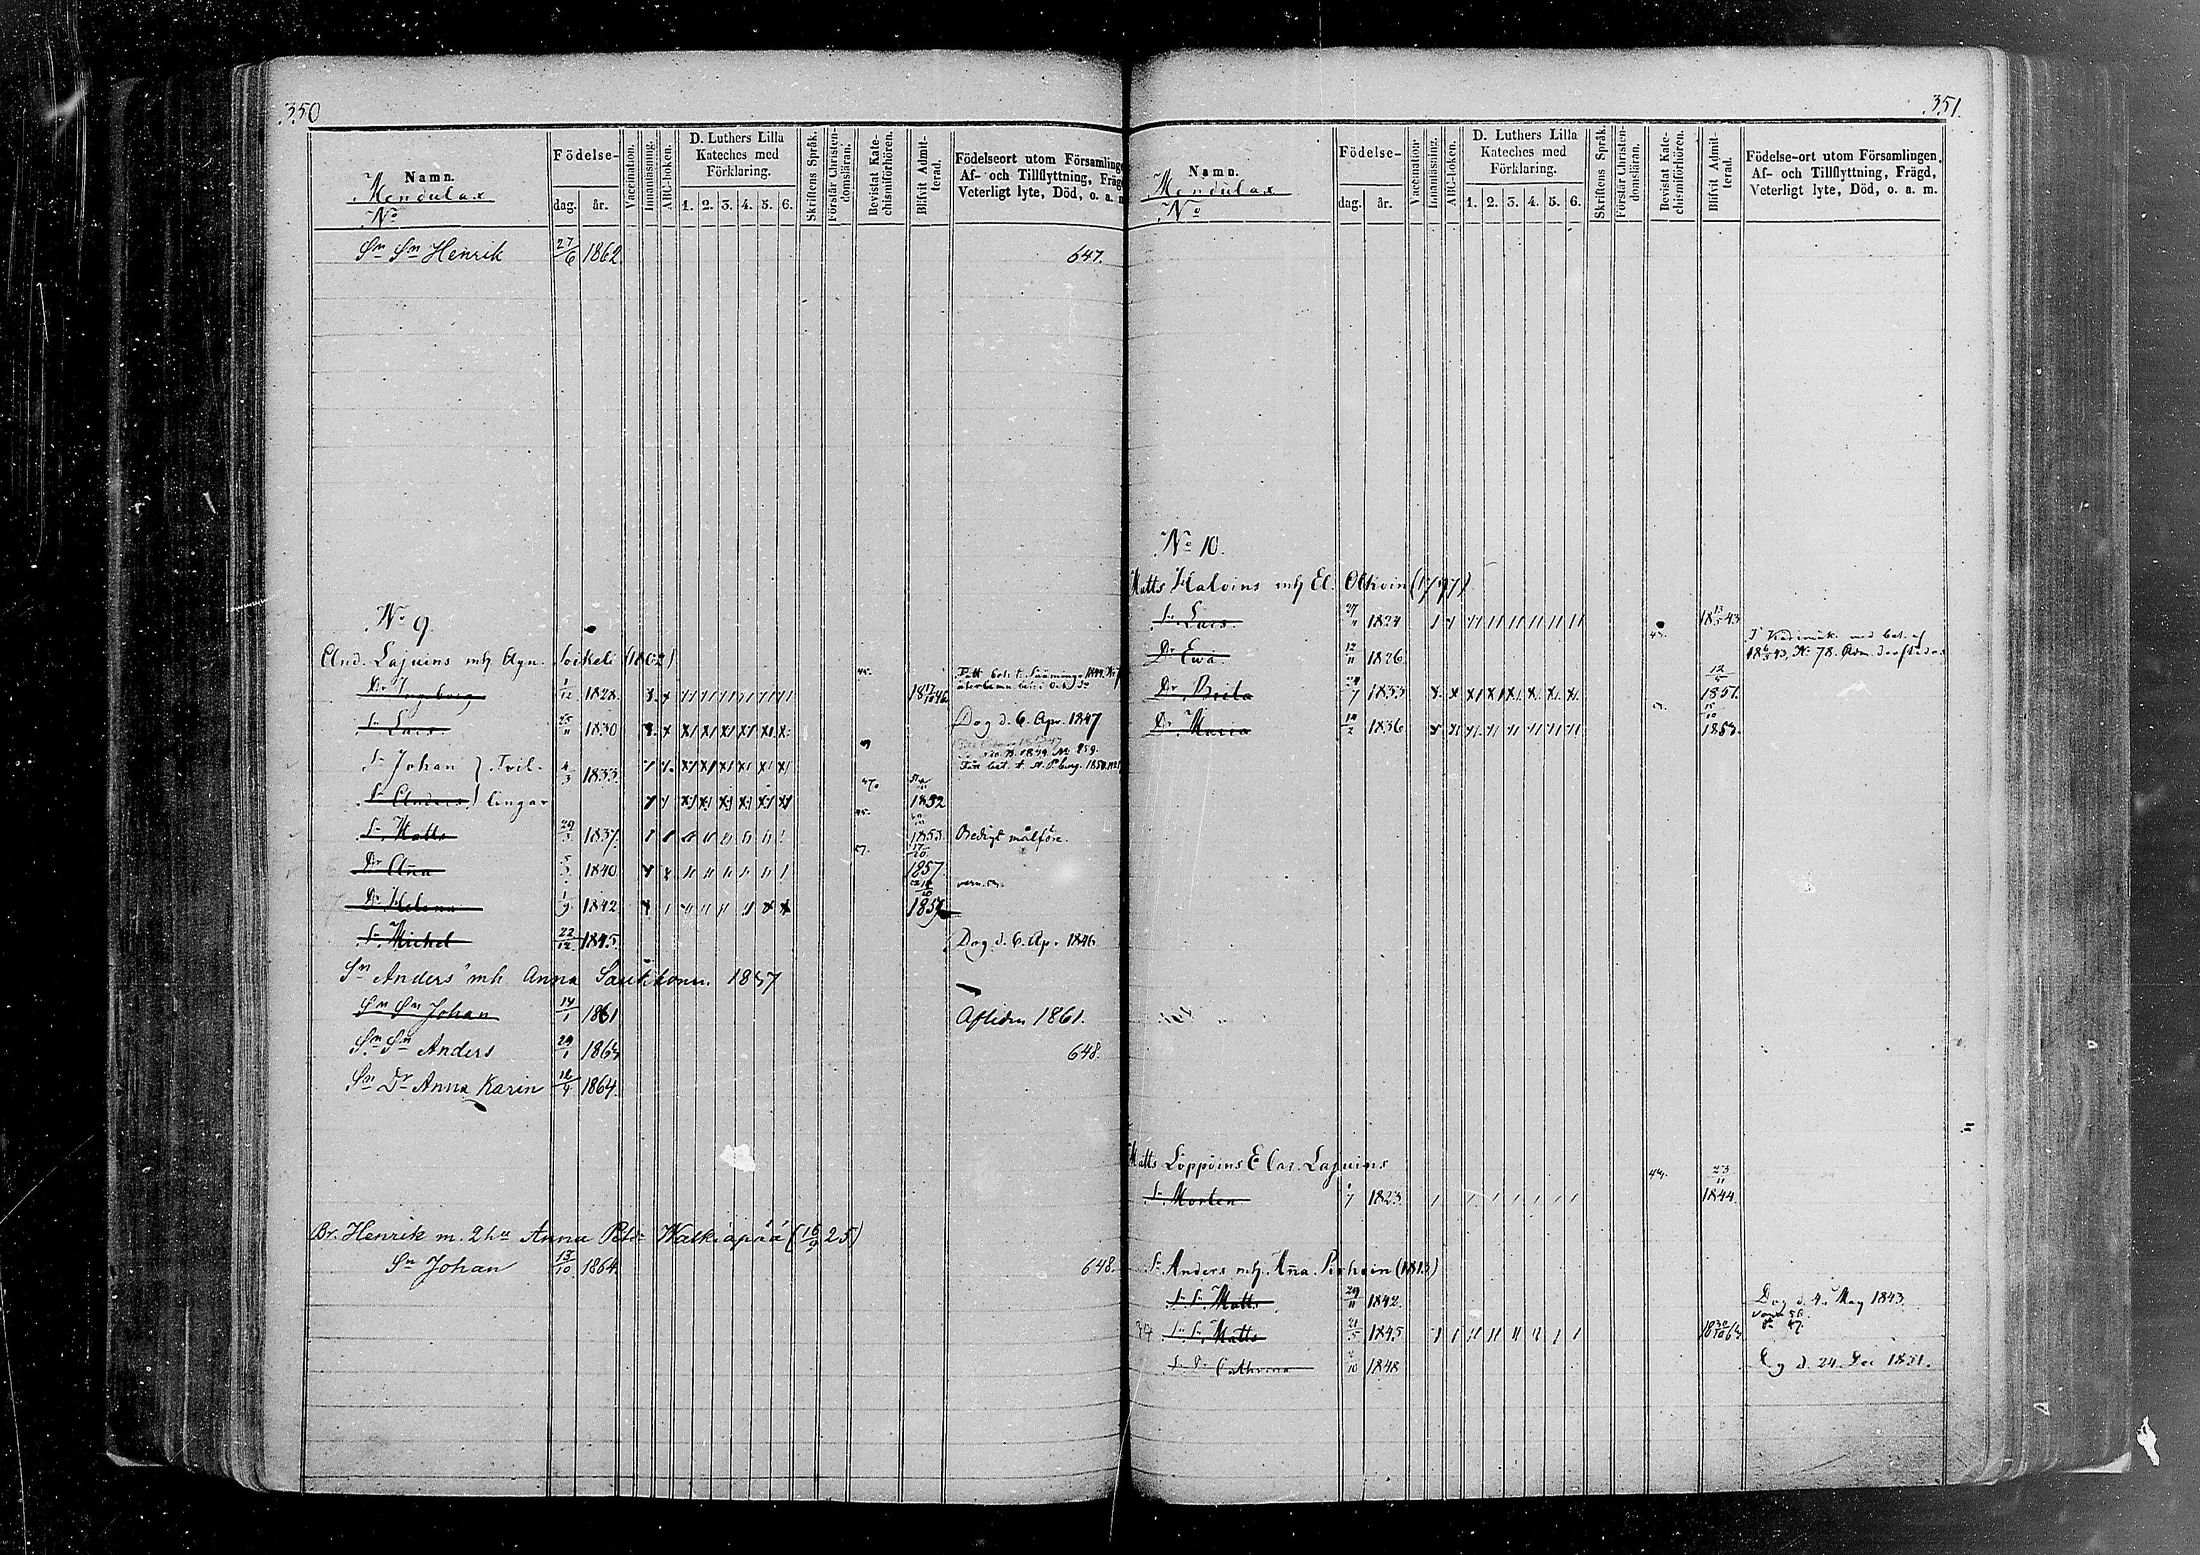 350
Namn.
Mendulax
No
Födelse-
dag. år.
Vaccination.
Innanläsning.
ABC-boken.
D. Luthers Lilla
Kateches med
Förklaring.
1. 2. 3. 4. 5. 6.
Skriftens Språk.
Förstår Christen-
domsläran.
Bevistat Kate-
chismiförhören.
Blifvit Admit-
terad.
Födelseort utom Församlinge
Af- och Tillflyttning, Frägd
Veterligt lyte, Död, o. a. m
Sn Sn Henrik 27/6 1862 647.
No 9.
And. Lajuins mh Agn. Soikeli (1802)
Dr Ingeborg 1/12 1828
Sn Lars 25/11 1830 Dog d. 6. Apr. 1847
Sn Johan } Tvil- 4/3 1833
Sn Anders } lingar 1852
Sn Matts 29/3 1837 1853 Oredigt målföre.
Dr Anna 5/3 1840 17/10 1857
Dr Helena 1/9 1842 1857
Sn Michel 22/12 1845 Dog d. 6. Ap. 1846
Sn Anders mh Anna 1837
Sn Sn Johan 14/1 1861 Afliden 1861.
Sn Sn Anders 29/1 1863 648.
Sn Dr Anna Karin 18/4 1864.
Br. Henrik m. 2 hu Anna Petsdr Walkiapää (16/9 25)
Sn Johan 13/10 1864 648.
351.
Namn.
Mendulax
No
Födelse-
dag. år.
Vaccination
Innanläsning.
ABC-boken.
D. Luthers Lilla
Kateches med
Förklaring.
1. 2. 3. 4. 5. 6.
Skriftens Språk.
Förstår Christen-
domsläran.
Bevistat Kate-
chismiförhören.
Blifvit Admit-
terad.
Födelse-ort utom Församlingen,
Af- och Tillflyttning, Frägd,
Veterligt lyte, Död, o. a. m.
No 10.
Matts Halvins mh El. Olkoin (1797)
Sn Lars 27/11 1824 18 13/5 43
Dr Ewa 12/11 1826
Dr Brita 1833 1851.
Dr Maria 1836 1853.
Matts Löppöins E Lajuins
Sn Morten 1823 23/11 1844.
Sn Anders mh. Anna (1813)
Sn Sn Matts 29/11 1842. Dog d. 4. May 1843.
Sn Sn Matts 21/5 1845 18 30/10 63
Sn Dr Cathrina 1848 Dog d. 24. Dec 1851.